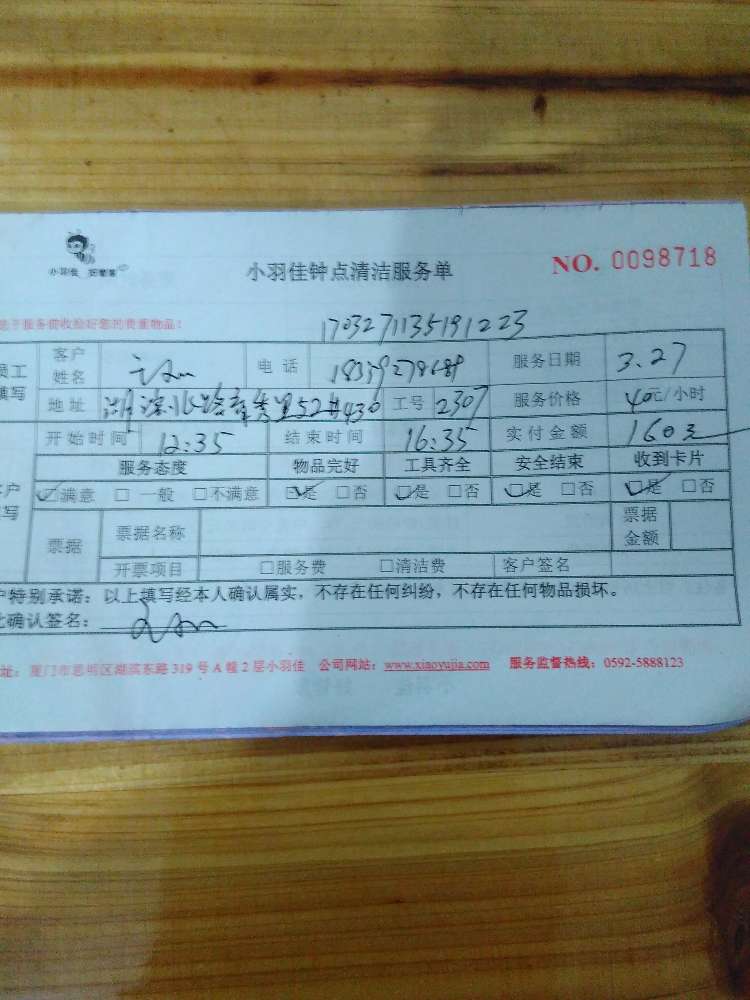 小羽佳 好管家
小羽佳钟点清洁服务单 NO. 0098718
服务前收拾好您的贵重物品：
1703271135191223
员工填写 客户姓名 电话 服务日期 3.27
地址 52# 430 工号 2307 服务价格 40元/小时
开始时间 12:35 结束时间 16:35 实付金额 160元
服务态度 物品完好 工具齐全 安全结束 收到卡片
满意 □ 一般 □不满意 是 □否 是 □否 是 □否 是 □否
票据 票据名称 票据金额
开票项目 □服务费 □清洁费 客户签名
户特别承诺：以上填写经本人确认属实，不存在任何纠纷，不存在任何物品损坏。
确认签名：
址：厦门市思明区湖滨东路 319 号 A 幢 2 层小羽佳 公司网站：www.xiaoyujia.com 服务监督热线：0592-5888123